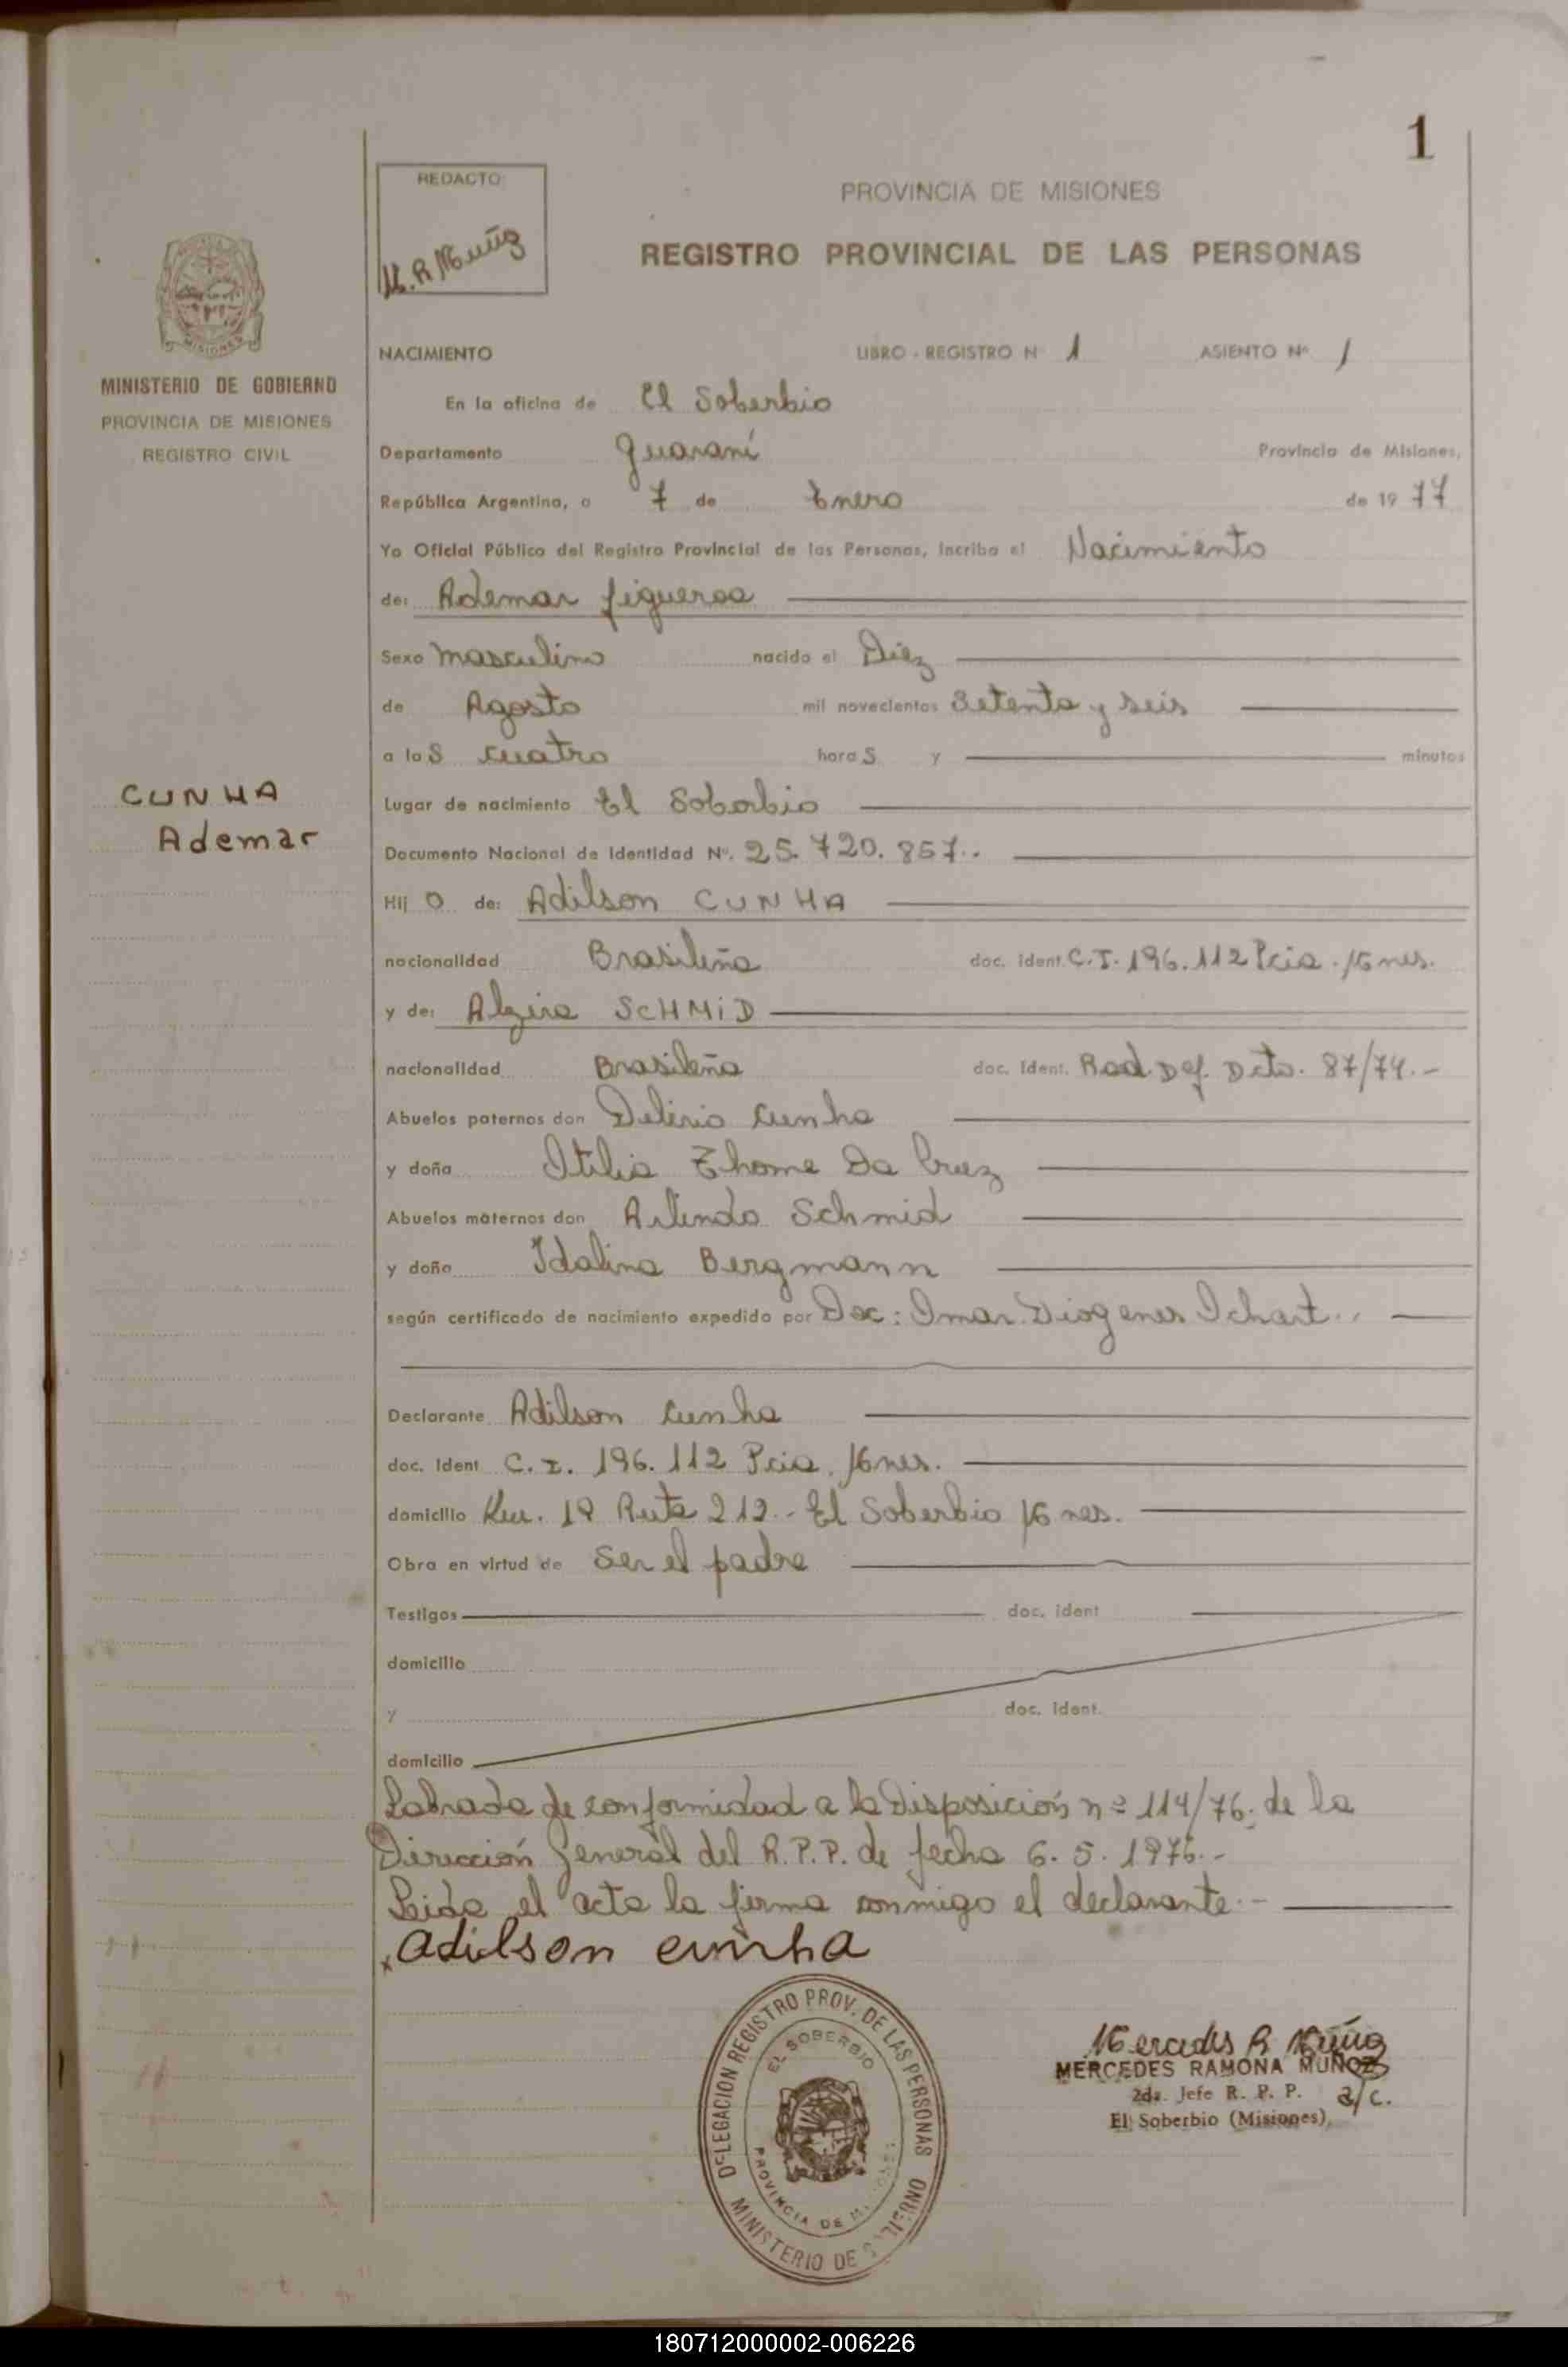 1
REDACTO
M. R. Muñoz
PROVINCIA DE MISIONES
REGISTRO PROVINCIAL DE LAS PERSONAS
MISIONES
MINISTERIO DE GOBIERNO
PROVINCIA DE MISIONES
REGISTRO CIVIL
NACIMIENTO LIBRO - REGISTRO N 1 ASIENTO Nº 1
En la oficina de El Soberbio
Departamento Guaraní Provincia de Misiones,
República Argentina, a 7 de Enero de 19 77
Yo Oficial Público del Registro Provincial de las Personas, Incribo el Nacimiento
de: Ademar figueroa
Sexo masculino nacido el Diez
de Agosto mil novecientos Setenta y seis
a las cuatro horas y minutos
CUNHA
Ademar
Lugar de nacimiento El Soberbio
Documento Nacional de Identidad Nº. 25.720.857.-
Hijo de: Adilson CUNHA
nacionalidad Brasileña doc. ident. C.I. 196.112 Pcia. Mnes.
y de: Alzira SCHMiD
nacionalidad Brasileña doc. ident. Rad. Def. Dcto. 87/74.-
Abuelos paternos don Delirio Cunha
y doña Itilia Thome Da Cruz
Abuelos maternos don Arlindo Schmid
y doña Idalina Bergmann
según certificado de nacimiento expedido por Doc: Omar Diogenes Ichart.-
Declarante Adilson Cunha
doc. ident C.I. 196.112 Pcia. Mnes.
domicilio Km. 18 Ruta 212.- El Soberbio Mnes.
Obra en virtud de Ser el padre
Testigos doc. ident
domicilio
y doc. ident.
domicilio
Labrada de conformidad a la Disposición nº 114/76. de la
Dirección General del R.P.P. de fecha 6.5.1976.-
Leida el acta la firma conmigo el declarante.-
x adilson cunha
DELEGACION REGISTRO PROV. DE LAS PERSONAS
EL SOBERBIO
PROVINCIA DE
MINISTERIO DE
Mercedes R Muñoz
MERCEDES RAMONA MUÑOZ
2da. Jefe R. P. P. a/c.
El Soberbio (Misiones)
180712000002-006226